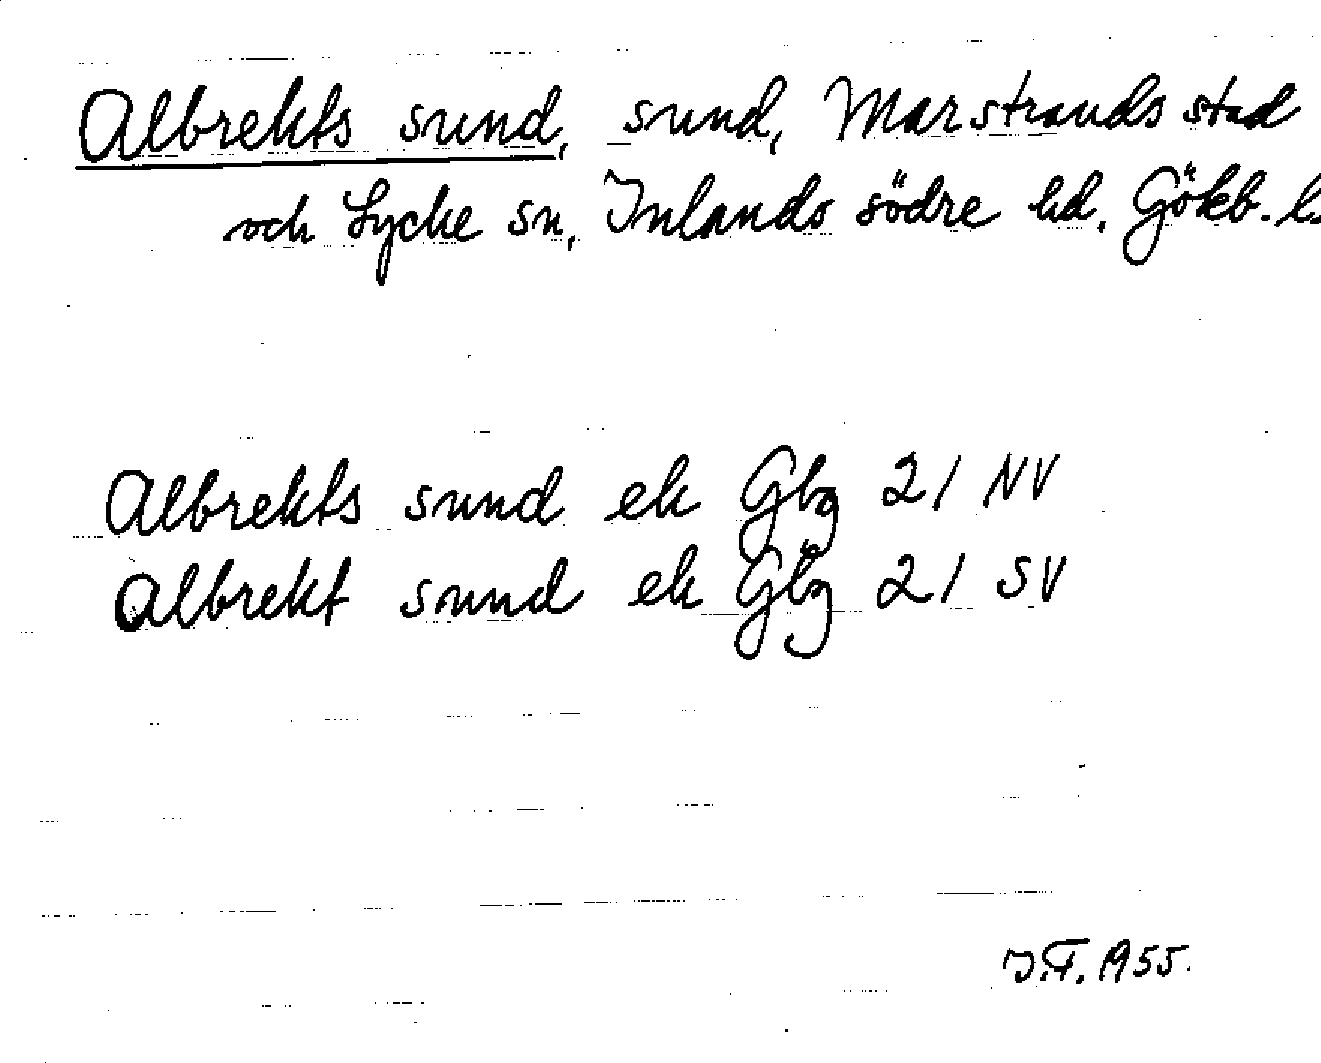 Albrekts sund, sund, Marstrands stad
och Lycke sn, Inlands södre hd. Götb. l.
Albrekts sund ek Gbg 21 NV
Albrekt sund ek Gbg 21 SV
J.F. 1955.